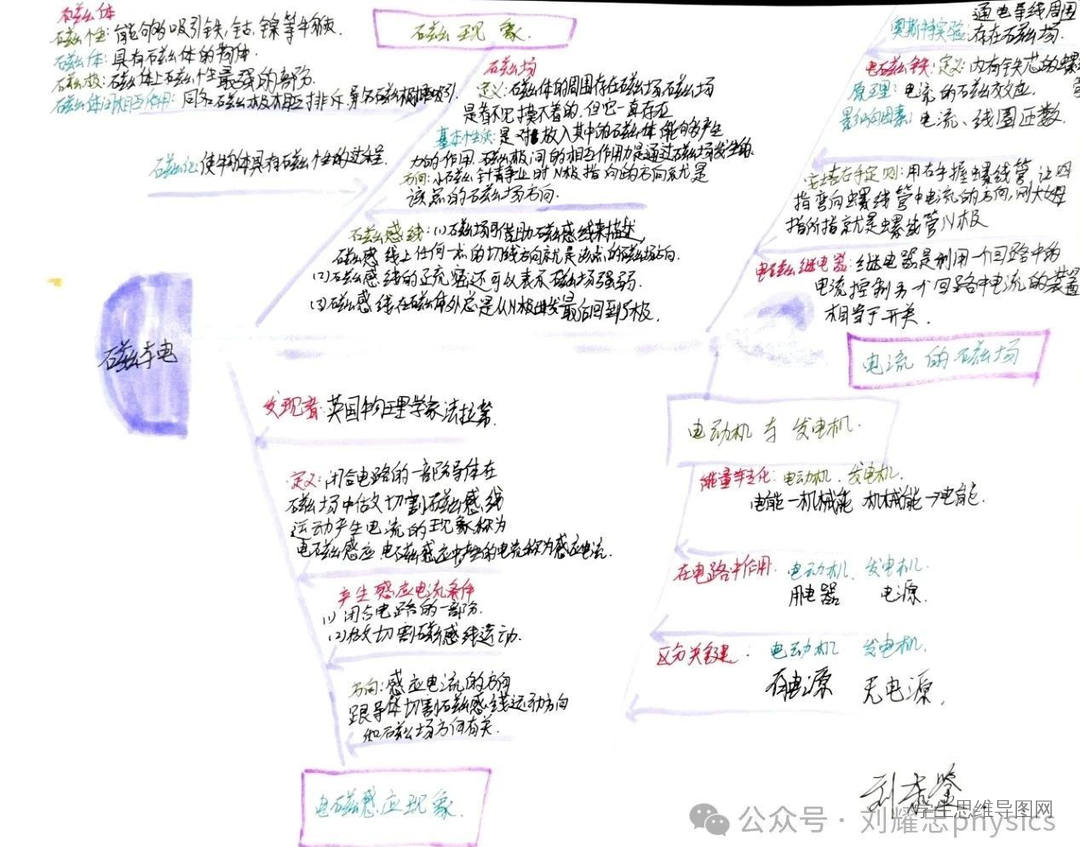 磁体
磁性:能够吸引铁,钴,镍等物质.
磁体:具有磁体的物体.
磁极:磁体上磁性最强的部分.
磁体间相互作用:同名磁极相互排斥,异名磁极相互吸引.
磁化:使物体具有磁性的过程.
磁现象.
磁场
定义:磁体的周围存在磁场磁场
是看不见摸不着的.但它一直存在
基本性质:是对放入其中的磁体能够产生
力的作用.磁极间的相互作用力是通过磁场发生的.
方向:小磁针静止时N极指向的方向就是
该点的磁场方向.
磁感线:(1)磁场可借助磁感线来描述,
磁感线上任何一点的切线方向就是该点的磁场方向.
(2)磁感线的疏密还可以表示磁场强弱.
(3)磁感线在磁体外总是从N极出发最后回到S极.
通电导线周围
奥斯特实验:存在磁场.
电磁铁:定义:内有铁芯的螺
原理:电流的磁效应.
影响因素:电流、线圈匝数.
安培右手定则:用右手握螺线管,让四
指弯向螺线管中电流的方向,则大拇
指所指就是螺线管N极
电磁继电器:继电器是利用一个回路中的
电流控制另一个回路中电流的装置
相当于开关.
电流的磁场
磁与电
发现者:英国物理学家法拉第.
定义:闭合电路的一部分导体在
磁场中做切割磁感线
运动产生电流的现象称为
电磁感应 电磁感应中产生的电流称为感应电流.
产生感应电流条件
(1)闭合电路的一部分.
(2)做切割磁感线运动.
方向:感应电流的方向
跟导体切割磁感线运动方向
和磁场方向有关.
电磁感应现象.
电动机与发电机.
能量转化:电动机、发电机.
电能—机械能 机械能→电能.
在电路中作用:电动机、发电机.
用电器 电源.
区分关键:电动机 发电机.
有电源 无电源.
学生思维导图网
公众号·刘耀志physics